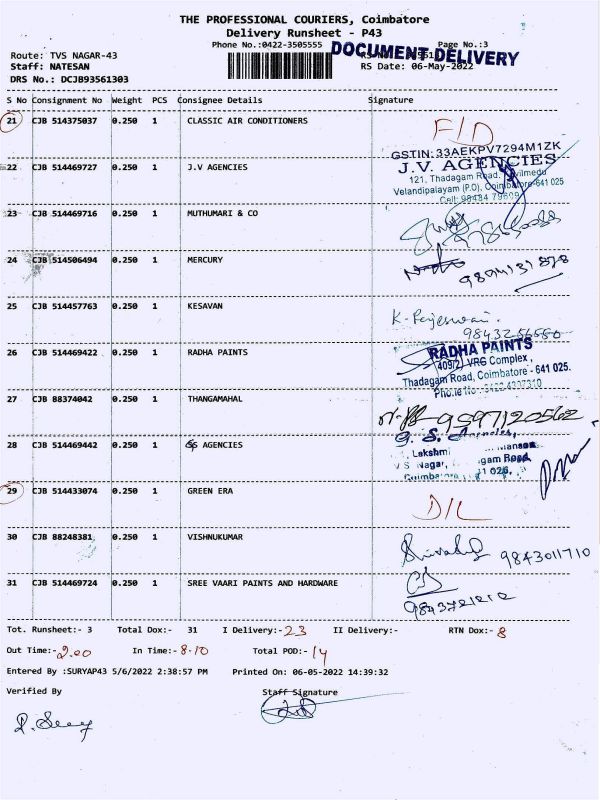 THE PROFESSIONAL COURIERS, Coimbatore
Delivery Runsheet - P43
Phone No.:0422-3505555 DOCUMENT DELIVERY Page No.:3
Route: TVS NAGAR-43
Staff: NATESAN RS Date: 06-May-2022
DRS No.: DCJB93561303
S No Consignment No Weight PCS Consignee Details Signature
21 CJB 514375037 0.250 1 CLASSIC AIR CONDITIONERS F/D
GSTIN:33AEKPV7294M1ZK
22 CJB 514469727 0.250 1 J.V AGENCIES J.V. AGENCIES
121, Thadagam Road,
Velandipalayam (P.O), Coimbatore-641 025
Cell: 98484 79609
23 CJB 514469716 0.250 1 MUTHUMARI & CO
24 CJB 514506494 0.250 1 MERCURY
25 CJB 514457763 0.250 1 KESAVAN
26 CJB 514469422 0.250 1 RADHA PAINTS RADHA PAINTS
409/2, VRG Complex,
Thadagam Road, Coimbatore - 641 025.
27 CJB 88374042 0.250 1 THANGAMAHAL 9597120562
G. S. Agencies,
28 CJB 514469442 0.250 1 AGENCIES Lakshmi
V S Nagar,
29 CJB 514433074 0.250 1 GREEN ERA D/L
30 CJB 88248381 0.250 1 VISHNUKUMAR 9843011710
31 CJB 514469724 0.250 1 SREE VAARI PAINTS AND HARDWARE
9843721212
Tot. Runsheet:- 3 Total Dox:- 31 I Delivery:- 23 II Delivery:- RTN Dox:- 8
Out Time:- 2.00 In Time:- 8.10 Total POD:- 14
Entered By :SURYAP43 5/6/2022 2:38:57 PM Printed On: 06-05-2022 14:39:32
Verified By Staff Signature